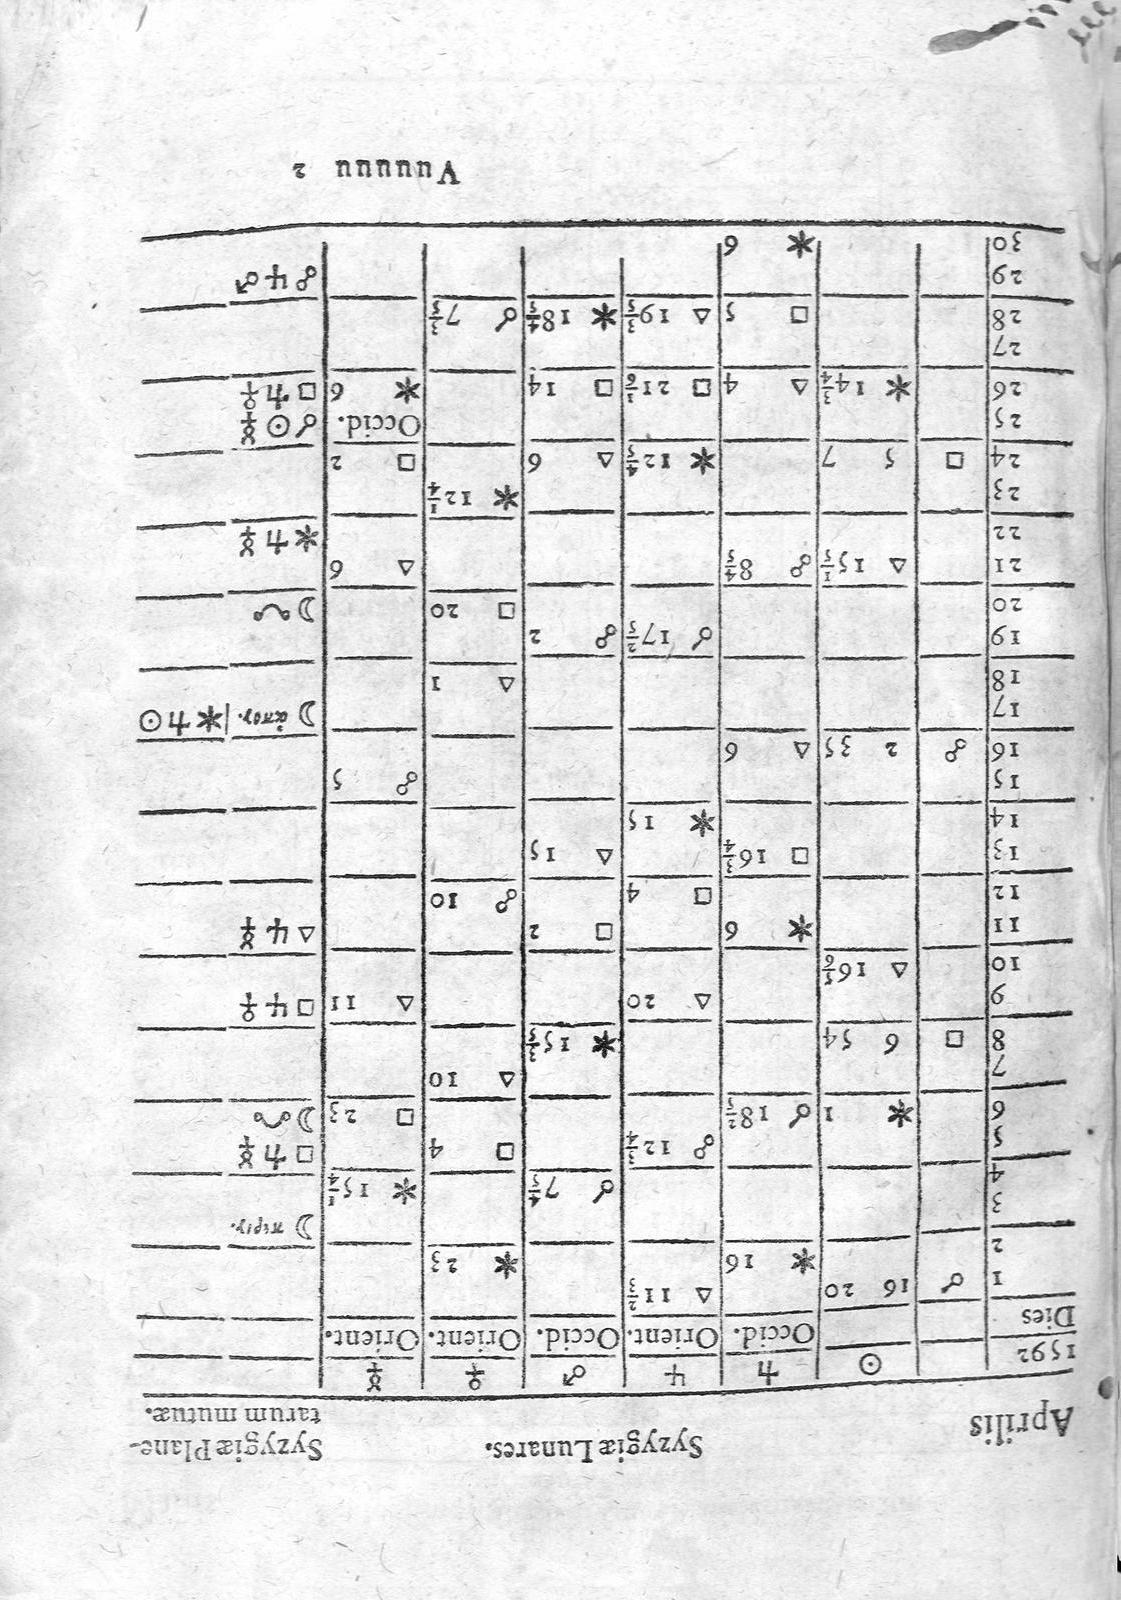 Aprilis Syzygiæ Lunares. Syzygiæ Plane-
tarum mutuæ.
1592 ☉ ♄ ♃ ♂ ♀ ☿
Dies Occid. Orient. Occid. Orient. Orient.
1 ☌ 16 20 △ 11 2/3
2 ✶ 16 ✶ 23
3 ☽ περιγ.
4 ☌ 7 4/5 ✶ 15 1/4
5 ☍ 12 3/4 □ 4 □ ♄ ☿
6 ✶ 1 ☌ 18 2/5 □ 23 ☽ ☊
7 △ 10
8 □ 6 54 ✶ 15 3/5
9 △ 20 △ 11 □ ♃ ♀
10 △ 16 5/6
11 ✶ 6 □ 2 △ ♃ ☿
12 □ 4 ☍ 10
13 □ 16 3/4 △ 15
14 ✶ 15
15 ☍ 5
16 ☍ 2 35 △ 6
17 ☽ ἀπογ. | ✶ ♄ ☉
18 △ 1
19 ☌ 17 2/5 ☍ 2
20 □ 20 ☽ ☋
21 △ 15 1/5 ☍ 8 4/5 △ 6
22 ✶ ♄ ☿
23 ✶ 12 1/4
24 □ 5 7 ✶ 12 4/5 △ 6 □ 2
25 Occid. ☌ ☉ ☿
26 ✶ 14 3/4 △ 4 □ 21 1/6 □ 14 ✶ 6 □ ♄ ♀
27
28 □ 5 △ 19 3/5 ✶ 18 4/5 ☌ 7 3/5
29 ☍ ♃ ♂
30 ✶ 6
Vuuuuu 2